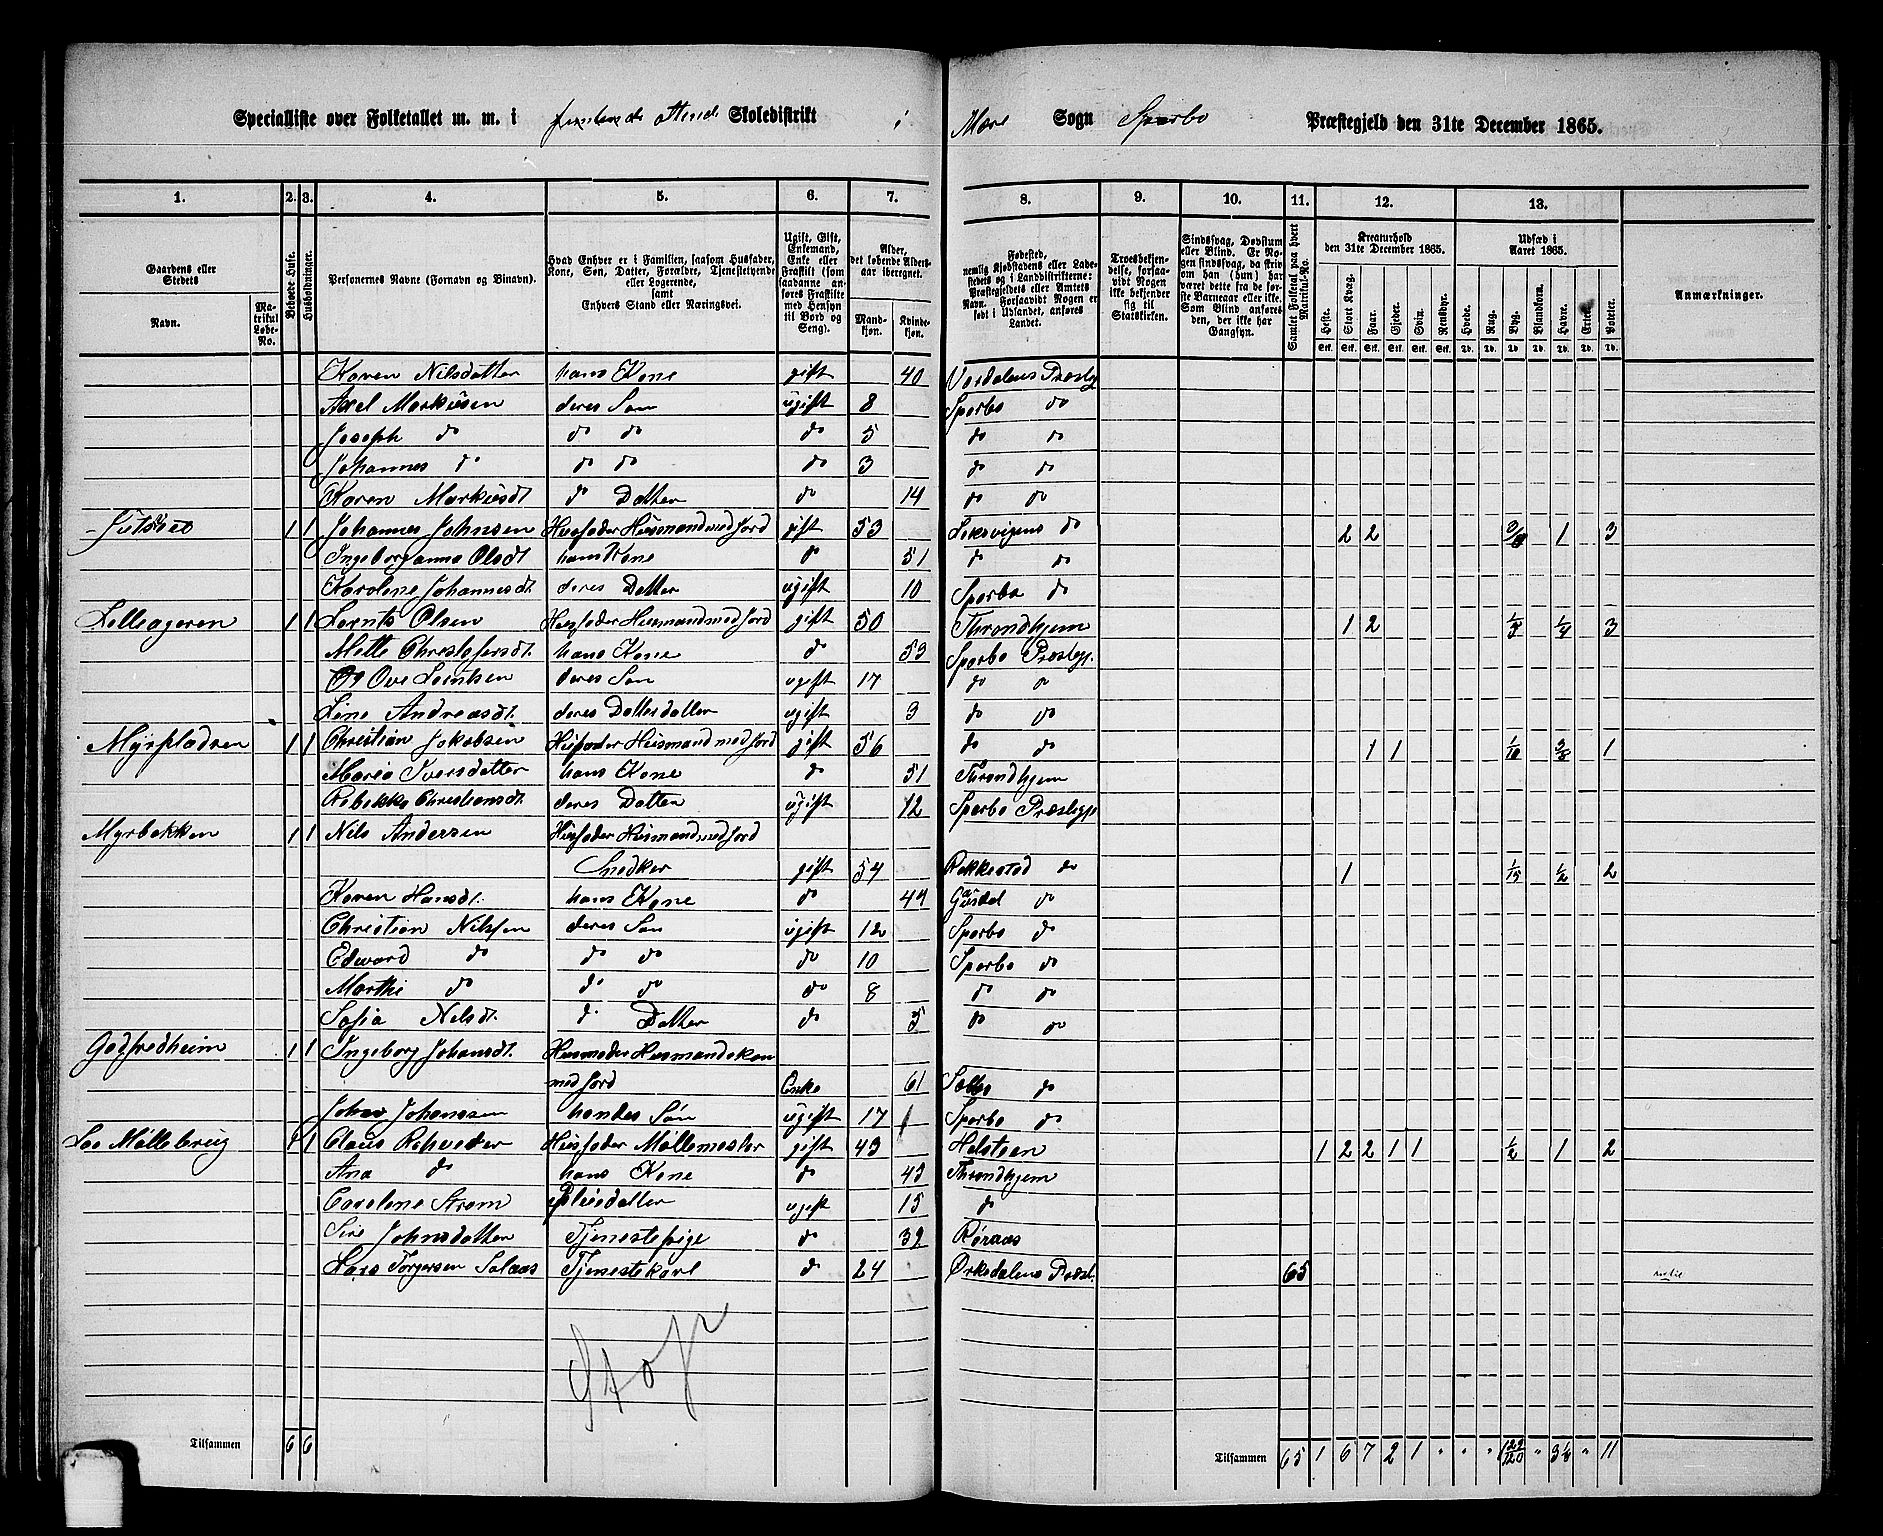 Specialliste over Folketallet m. m. i Skoledistrikt i Mære Sogn Sparbo Præstegjeld den 31te December 1865.
1. 2. 3. 4. 5. 6. 7. 8. 9. 10. 11. 12. 13.
Gaardens eller Stedets Navn. Matrikul Løbe-No.
Beboede Huse.
Husholdninger.
Personernes Navne (Fornavn og Binavn).
Hvad Enhver er i Familien, saasom Husfader, Kone, Søn, Datter, Forældre, Tjenestetyende eller Logerende, samt Enhvers Stand eller Næringsvei.
Ugift, Gift, Enkemand, Enke eller Fraskilt (som saadanne anføres Fraskilte med Hensyn til Bord og Seng).
Alder, det løbende Alders-aar iberegnet. Mandkjøn. Kvindekjøn.
Fødested, nemlig Kjøbstadens eller Ladestedets og i Landdistrikterne: Præstegjeldets eller Amtets Navn. Forsaavidt Nogen er født i Udlandet, anføres Landet.
Troesbekjendelse, forsaavidt Nogen ikke bekjender sig til Statskirken.
Sindssvag, Døvstum eller Blind. Er Nogen sindssvag, da skrives han (hun) har været dette fra de første Barneaar eller ikke. Som Blind anføres den, der ikke har Gangsyn.
Samlet Folketal paa hvert Matrikul-No.
Kreaturhold den 31te December 1865. Heste. Stort Kvæg. Faar. Gjeder. Svin. Rensdyr.
Udsæd i Aaret 1865. Hvede. Rug. Byg. Blandkorn. Havre. Erter. Poteter.
Anmærkninger.
Stk. Stk. Stk. Stk. Stk. Stk. Td. Td. Td. Td. Td. Td. Td.
Karen Nilsdatter hans Kone gift 40 Værdalens Præstg
Axel Markusen deres Søn ugift 8 Sparbo do
Joseph do do do do 5 do do
Johannes do do do do 3 do do
Karen Markusdt do Datter do 14 do do
1 1 Johannes Johnsen Husfader Husmand med Jord gift 53 Leksvigens do 2 2 3/8 1 3
Ingeborganna Olsdt hans Kone do 51 do do
Karoline Johannesdt deres Datter ugift 10 Sparbo do
Lilleageren 1 1 Lornts Olsen Husfader Husmand med Jord gift 50 Throndhjem 1 2 1/4 3
Mette Christofersdt. hans Kone do 53 Sparbo Præstegj.
Ove Lorntsen deres Søn ugift 17 do do
Line Andreasdt. deres Datterdatter ugift 3 do do
Myrpladsen 1 1 Christian Jakobsen Husfader Husmand med Jord gift 56 do do 1 1 1/10 3/8 1
Maria Iversdatter hans Kone do 51 Throndhjem
Rebekka Christiansdt. deres Datter ugift 12 Sparbo Præstegj
Myrbakken 1 1 Nils Andersen Husfader Husmand med Jord
Snedker gift 54 Rakkestad do 1 1/15 1/2 2
Karen Hansdt. hans Kone do 44 do
Christian Nilssen deres Søn ugift 12 Sparbo do
Edward do do do do 10 Sparbo do
Marthi do do do do 8 do do
Sofia Nilsdt. do Datter do 5 do do
Godfredheim 1 1 Ingeborg Johansdt. Husmoder Husmandskon
med Jord Enke 61 do
John Johansen hendes Søn ugift 17 Sparbo do
Møllebrug 1 1 Claus Rehveder Husfader Møllemester gift 43 Holsteen 1 2 2 1 1 1/2 1 2
Ana do hans Kone do 43 Throndhjem
Caroline Strøm Pleiedatter ugift 15 do
Siri Johnsdatter Tjenestepige do 32 Røraas
Lars Torgersen Solaas Tjenestekarl do 24 Ørkedalens Præst. 65
Tilsammen 6 6 Tilsammen 65 1 6 7 2 1 " " " 1 29/120 " 3 1/8 " 11